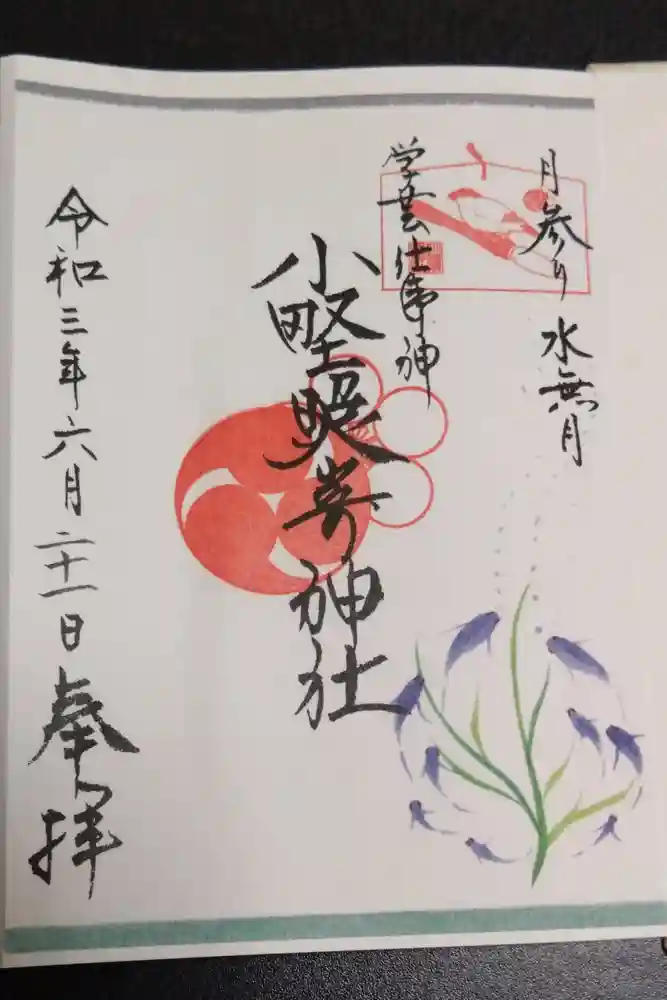 月参り 水無月
学芸仕事神
小野照崎神社
令和三年六月二十一日 奉拝